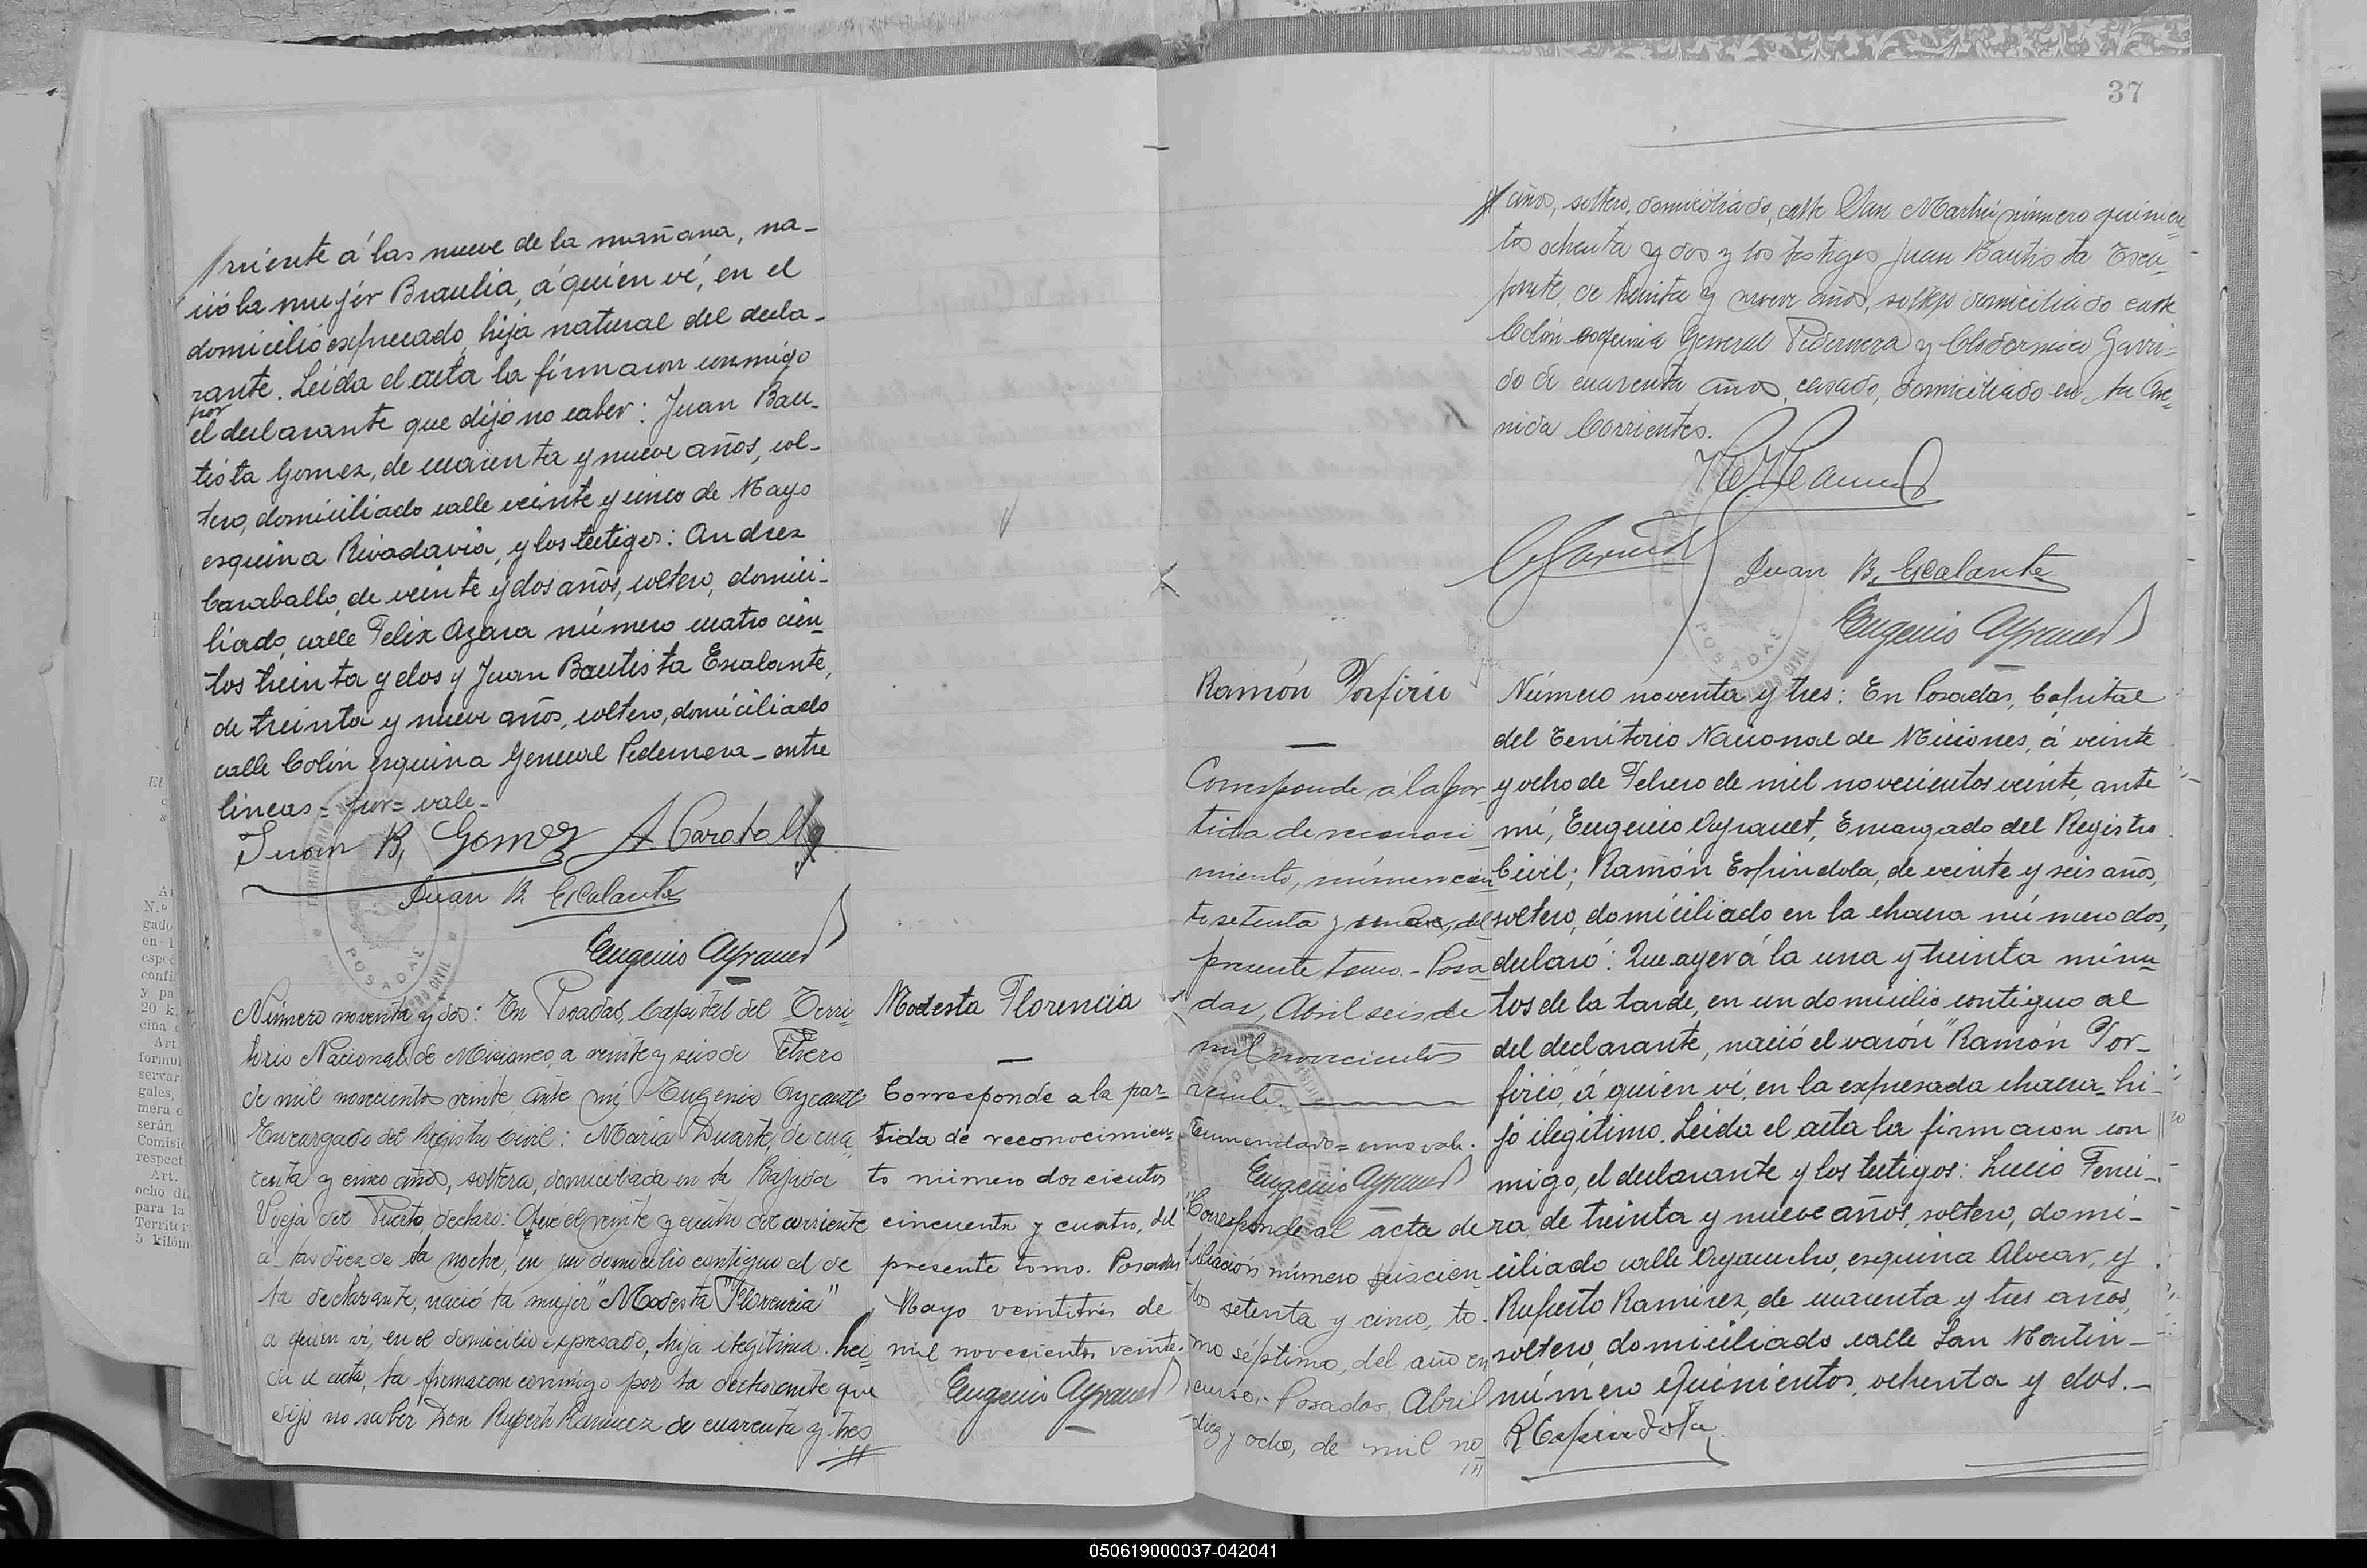 rriente á las nueve de la mañana, na-
ció la mujér Braulia, á quién ví, en el
domicilio expresado, hija natural del decla-
rante. Leída el acta la firmaron conmigo
por
el declarante que dijo no saber: Juan Bau-
tista Gomez, de cuarenta y nueve años, sol-
tero, domiciliado calle veinte y cinco de Mayo
esquina Rivadavia, y los testigos: Andrez
Caraballo, de veinte y dos años, soltero, domici-
liado, calle Felix Azara número cuatro cien-
tos treinta y dos y Juan Bautista Escalante,
de treinta y nueve años, soltero, domiciliado
calle Colón esquina General Pedernera - entre
lineas = por = vale -
Juan B. Gomez A. Caraballo
Juan B. Escalante
Eugenio Ayrauet
Número noventa y dos: En Posadas, Capital del Terri-
torio Nacional de Misiones, a veinte y seis de Febrero
de mil novecientos veinte, ante mí, Eugenio Ayrauet
Encargado del Registro Civil: María Duarte, de cua-
renta y cinco años, soltera, domiciliada en la Bajada
Vieja del Puerto, declaró: Que el veinte y cuatro del corriente
a las diez de la noche, en un domicilio contiguo al de
la declarante, nació la mujer "Modesta Florencia"
a quien ví, en el domicilio expresado, hija ilegítima. Lei-
da el acta, la firmaron conmigo por la declarante que
dijo no saber Don Ruperto Ramirez de cuarenta y tres
Modesta Florencia
Corresponde a la par-
tida de reconocimien-
to número doscientos
cincuenta y cuatro, del
presente tomo. Posadas
Mayo veintitrés de
mil novecientos veinte.
Eugenio Ayrauet
37
años, soltero, domiciliado, calle San Martin número quinien-
tos ochenta y dos y los testigos Juan Bautista Esca-
lante, de treinta y nueve años, soltero domiciliado calle
Colón esquina General Pedernera y Clodormico Garri-
do de cuarenta años, casado, domiciliado en la Ave-
nida Corrientes.
Juan B. Escalante
Eugenio Ayrauet
Ramón Porfirio
Corresponde á la par-
tida de reconoci-
miento, número cien-
to setenta y uno, del
presente tomo. - Posa-
das, Abril seis de
mil novecientos
veinte.
Enmendado = uno vale.
Eugenio Ayrauet
Corresponde al acta de
filiación número seiscien-
tos setenta y cinco, to-
mo séptimo, del año en
curso. - Posadas, Abril
diez y ocho, de mil no
Número noventa y tres: En Posadas, Capital
del Territorio Nacional de Misiones, á veinte
y ocho de Febrero de mil novecientos veinte, ante
mí, Eugenio Ayrauet, Encargado del Registro
Civil; Ramón Espindola, de veinte y seis años,
soltero, domiciliado en la chacra número dos,
declaró: Que ayer á la una y treinta minu-
tos de la tarde, en un domicilio contiguo al
del declarante, nació el varón "Ramón Por-
firio", á quién ví, en la expresada chacra - hi-
jo ilegítimo. Leída el acta la firmaron con
migo, el declarante y los testigos: Lucio Ferrei-
ra, de treinta y nueve años, soltero, domi-
ciliado calle Ayacucho, esquina Alvear, y
Ruperto Ramirez, de cuarenta y tres años,
soltero, domiciliado calle San Martin -
número quinientos, ochenta y dos. -
R Espindola
050619000037-042041